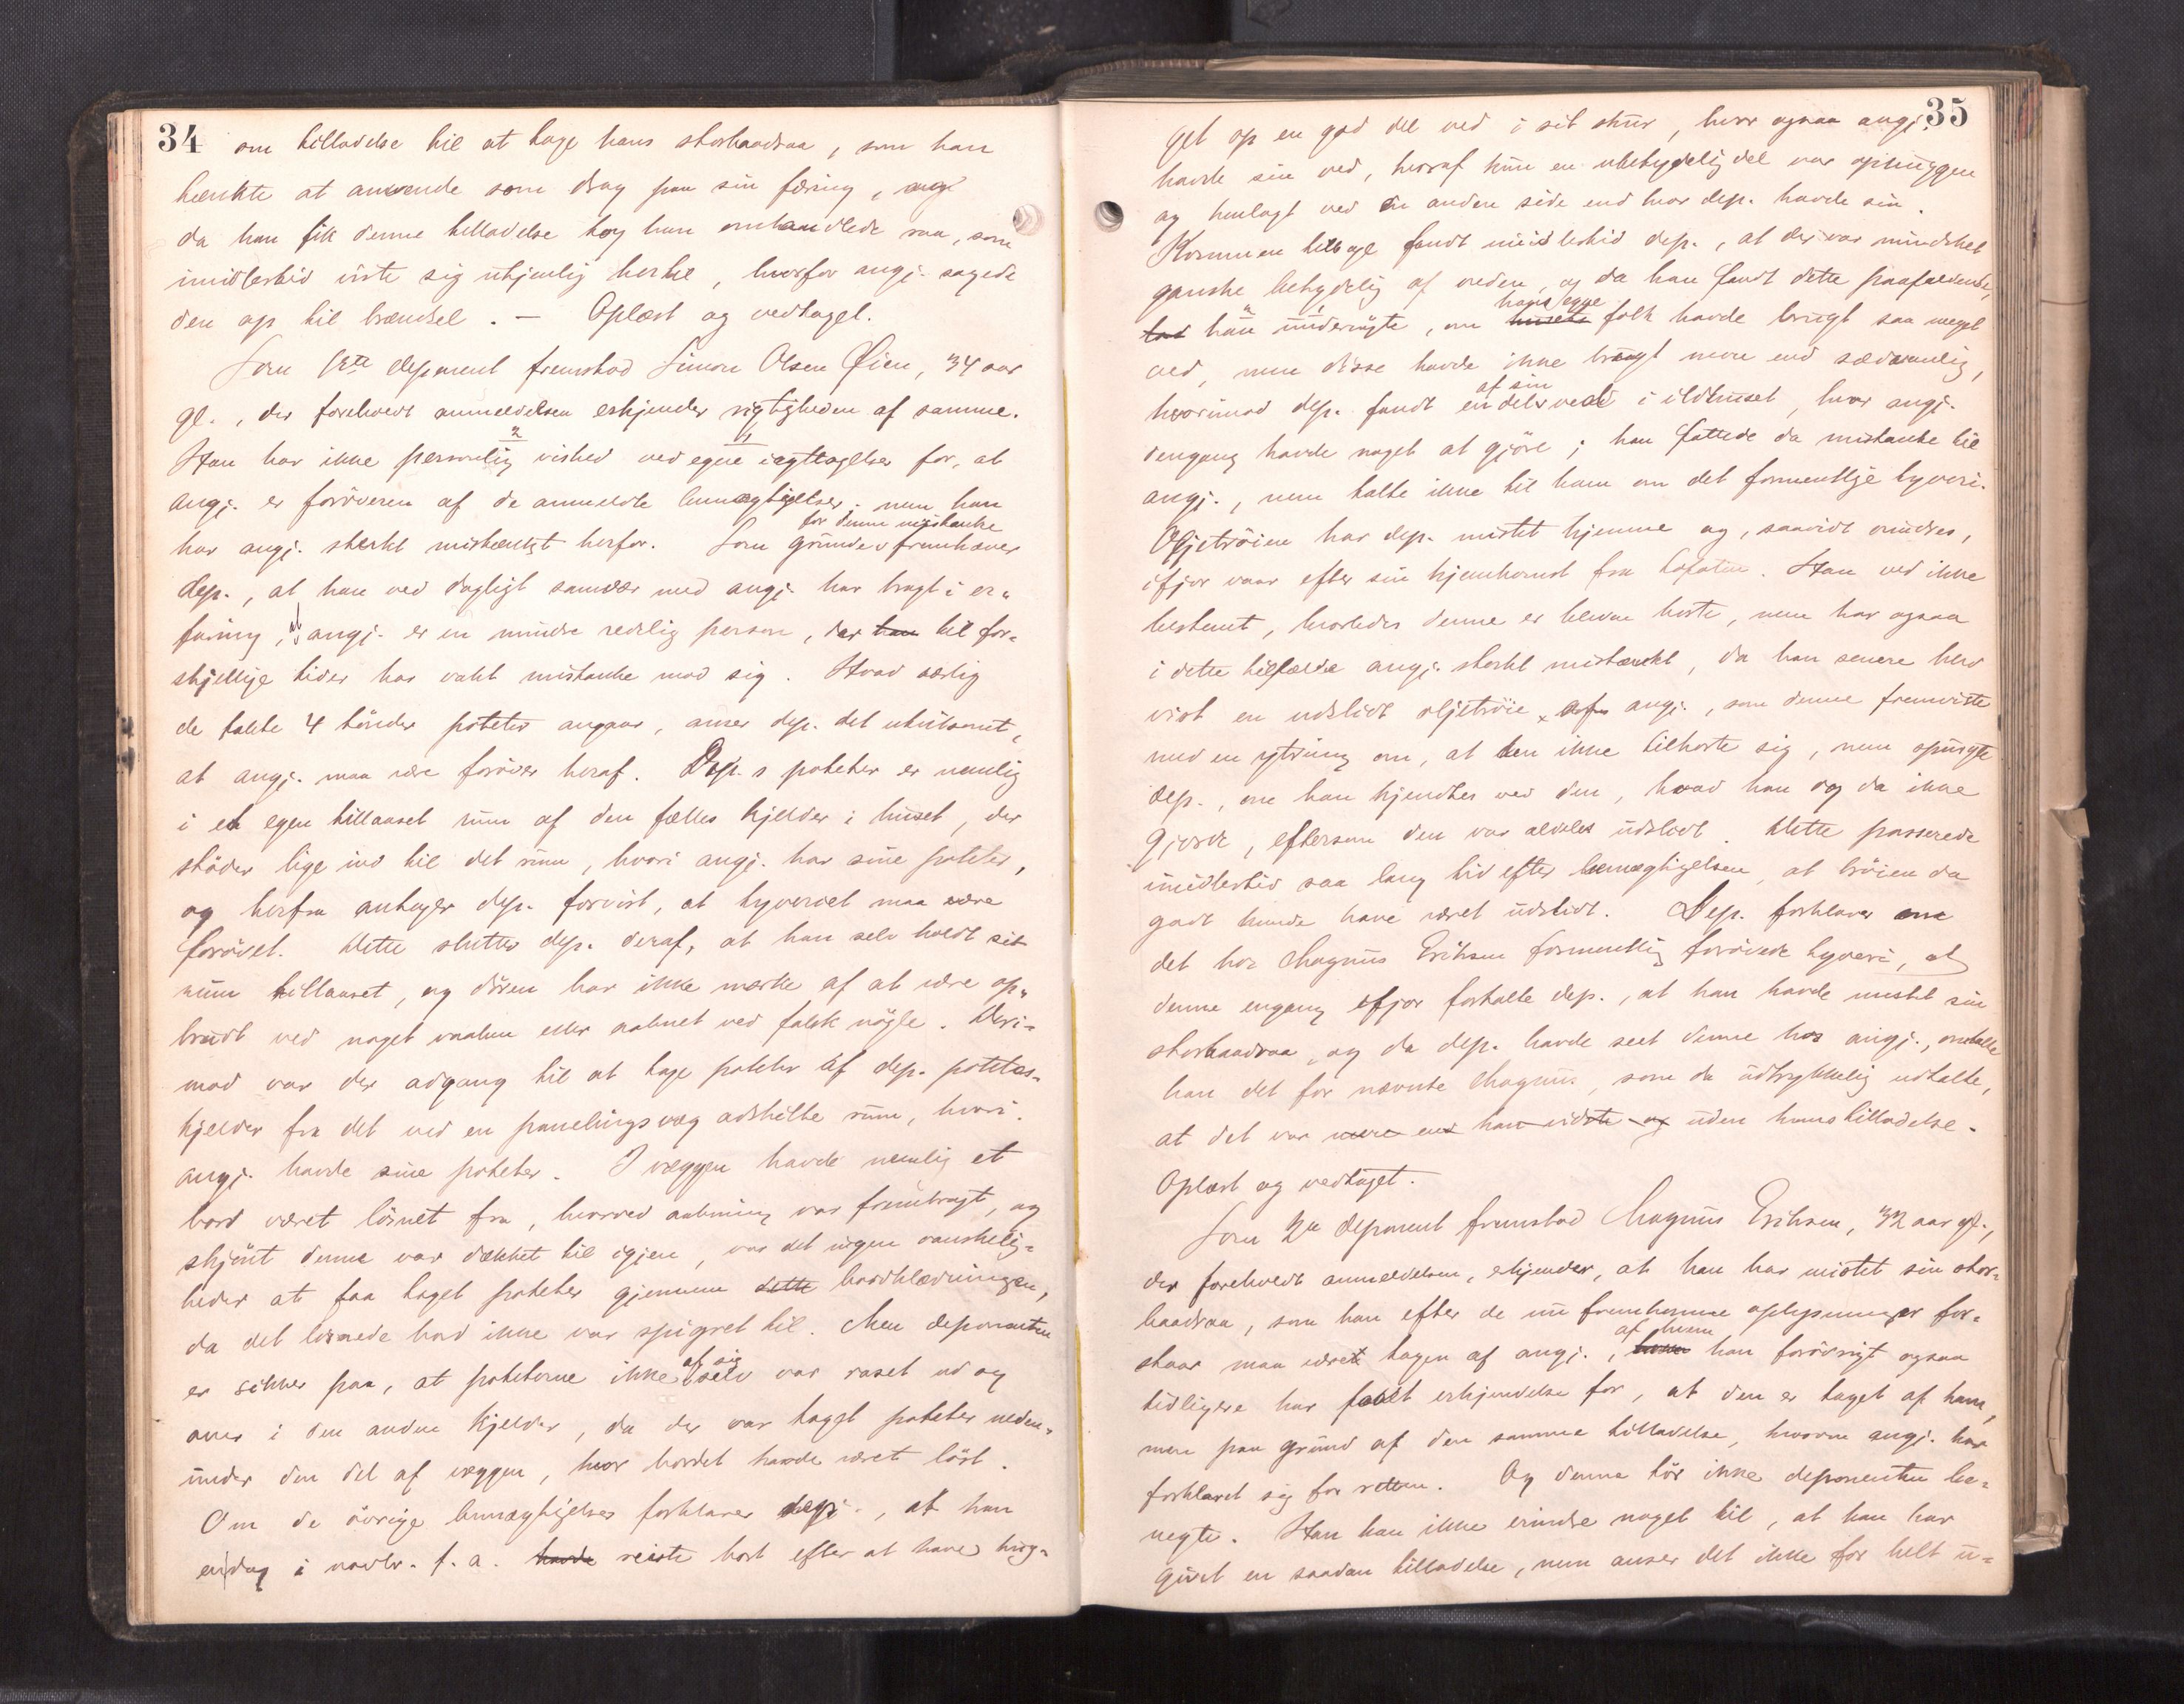 34
om tilladelse til at tage hans storbaadraa, som han
tænkte at anvende som drag paa sin færing, og
da han fik denne tilladelse tog han omhandlede raa, som
imidlertid viste sig utjenlig hertil, hvorfor angj. sagede
den op til brændsel. — Oplæst og vedtaget.
Som 1ste deponent fremstod Simon Olsen Øien, 34 aar
gl., der foreholdt anmeldelsen erkjender rigtigheden af samme.
Han har ikke personlig vished ved egne iagttagelser for, at
angj. er forøveren af de anmeldte bemægtigelser, men han
har angj. sterkt mistænkt herfor. Som grunde for denne mistanke fremhæver
dep., at han ved dagligt samvær med angj. har bragt i er-
faring, at angj. er en mindre redelig person, der han til for-
skjellige tider har vakt mistanke mod sig. Hvad særlig
de talte 4 tønder poteter angaar, anser dep. det utvilsomt,
at angj. maa være forøver heraf. Dep.s poteter er nemlig
i et egen tillaaset rum af den fælles kjelder i huset, der
støder lige ind til det rum, hvori angj. har sine poteter,
og herfra antager dep. forvist, at tyveriet maa være
forøvet. Dette slutter dep. deraf, at han selv holdt sit
rum tillaaset, og døren har ikke mærke af at være op-
brudt ved noget vaaben eller aabnet ved falsk nøgle. Deri-
mod var der adgang til at tage poteter af dep. potetes-
kjelder fra det ved en panelingsvæg adskilte rum, hvori
angj. havde sine poteter. I væggen havde nemlig et
bord været løsnet fra, hvorved aabning var frembragt, og
skjønt denne var dækket til igjen, var det ingen vanskelig-
heder at faa taget poteter gjennem dette bordklædningen,
da det løsnede bord ikke var spigret til. Men deponenten
er sikker paa, at poteterne ikke af sig selv var raset ud og
over i den anden kjelder, da der var taget poteter neden-
under den del af væggen, hvor bordet havde været løst.
Om de øvrige bemægtigelser forklarer dep., at han
en dag i novbr. f. a. havde reiste bort efter at have hug-
35
get op en god del ved i sit skur, hvor ogsaa angj.
havde sin ved, hvoraf kun en ubetydelig del var ophuggen
og henlagt ved den anden side end hvor dep. havde sin.
Kommen tilbage fandt imidlertid dep., at der var mindsket
ganske betydelig af veden, og da han fandt dette paafaldende,
lod han undersøgte, om husets hans egne folk havde brugt saa meget
ved, men disse havde ikke brugt mere end sædvanlig,
hvorimod dep. fandt en del af sin ved i ildhuset, hvor angj.
dengang havde noget at gjøre; han fattede da mistanke til
angj., men talte ikke til ham om det formentlige tyveri.
Oljetrøien har dep. mistet hjemme og, saavidt mindes,
ifjor vaar efter sin hjemkomst fra Lofoten. Han ved ikke
bestemt, hvorledes denne er bleven borte, men har ogsaa
i dette tilfælde angj. sterkt mistænkt, da han senere blev
vist en udslidt oljetrøie af angj., som denne fremviste
med en ytring om, at den ikke tilhørte sig, men spurgte
dep., om han kjendtes ved den, hvad han og da ikke
gjorde, eftersom den var aldeles udslidt. Dette passerede
imidlertid saa lang tid efter bemægtigelsen, at trøien da
godt kunde have været udslidt. Dep. forklarer om
det hos Magnus Eriksen formentlig forøvede tyveri, at
denne engang ifjor fortalte dep., at han havde mistet sin
storbaadraa, og da dep. havde seet denne hos angj., omtalte
han det for nævnte Magnus, som da udtrykkelig udtalte,
at det var mere end han vidste og uden hans tilladelse.
Oplæst og vedtaget.
Som 2de deponent fremstod Magnus Eriksen, 32 aar gl.,
der foreholdt anmeldelsen, erkjender, at han har mistet sin stor-
baadraa, som han efter de nu fremkomne oplysninger for-
staar maa været tagen af angj., hvem af hvem han forøvrigt ogsaa
tidligere har faaet erkjendelse for, at den er taget af ham,
men paa grund af den samme tilladelse, hvorom angj. har
forklaret sig for retten. Og denne tør ikke deponenten be-
negte. Han kan ikke erindre noget til, at han har
givet en saadan tilladelse, men anser det ikke for helt u-